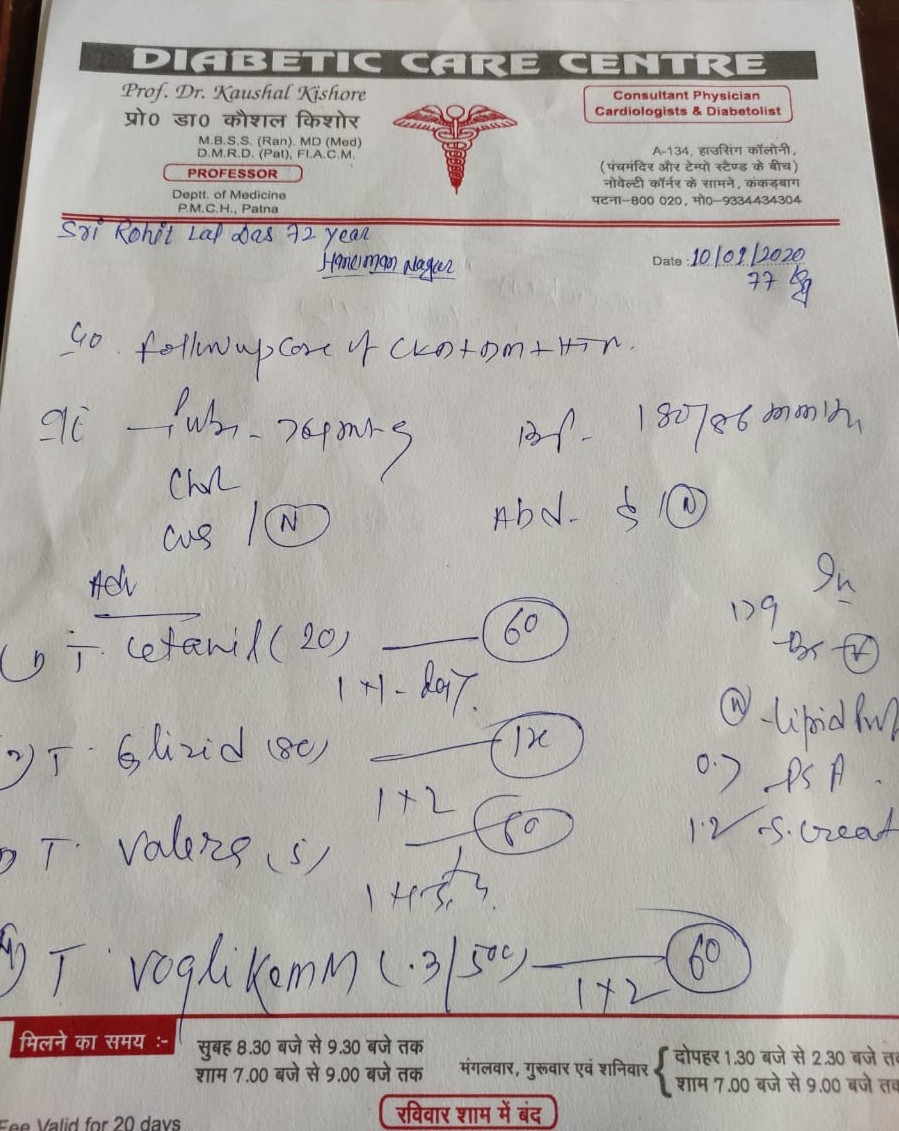 DIABETIC CARE CENTRE
Prof. Dr. Kaushal Kishore
प्रो० डा० कौशल किशोर
M.B.S.S. (Ran). MD (Med)
D.M.R.D. (Pat), F.I.A.C.M.
PROFESSOR
Deptt. of Medicine
P.M.C.H., Patna
Consultant Physician
Cardiologists & Diabetolist
A-134, हाउसिंग कॉलोनी,
(पंचमंदिर और टेम्पो स्टैण्ड के बीच)
नोवेल्टी कॉर्नर के सामने, कंकड़बाग
पटना-800 020, मो०-9334434304
Sri Rohit Lal Das 72 year
Hanuman Nagar
Date : 10/09/2020
77 kg
follow up case of CKD+DM+HTN.
BP- 180/86
CVS / N
Abd- / N
Adv
1) T. Cetanil (20) 60
1+1-
2) T. Glizid (80)
1+2
T. Valera (5) 60
4) T. Voglikem M (.3/500) 60
1+2
129
N -lipid
0.7 PSA
1.2 S. Creat
मिलने का समय :-
सुबह 8.30 बजे से 9.30 बजे तक
शाम 7.00 बजे से 9.00 बजे तक
मंगलवार, गुरूवार एवं शनिवार
दोपहर 1.30 बजे से 2.30 बजे
शाम 7.00 बजे से 9.00 बजे
रविवार शाम में बंद
Fee Valid for 20 days